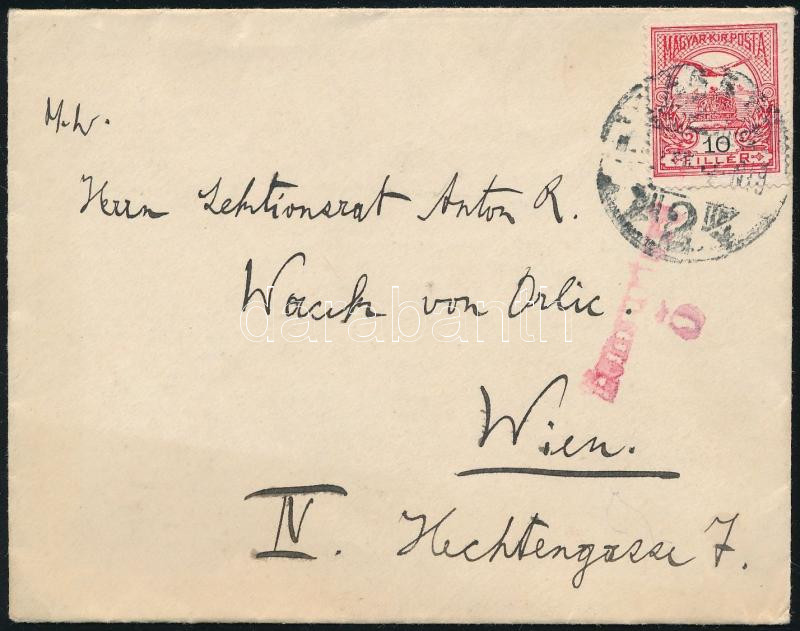 MAGYAR·KIR·POSTA
10
FILLÉR
M.W.
Herrn Sektionsrat Anton R.
Wacek von Orlic.
darabanth
Wien.
IV. Hechtengasse 7.